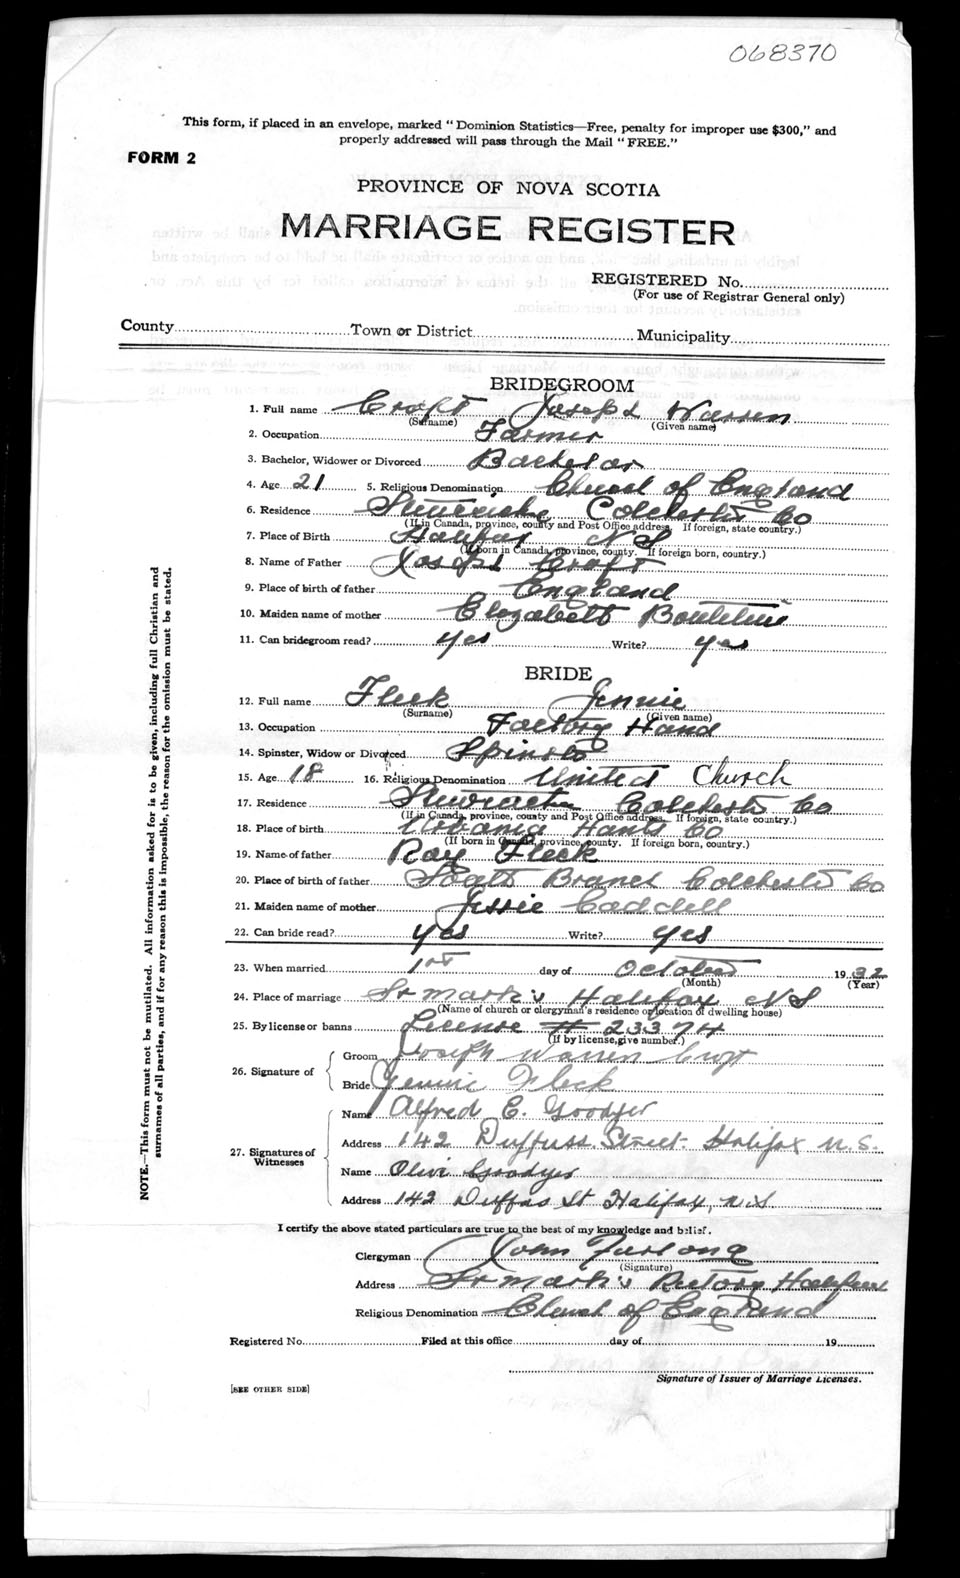 068370
This form, if placed in an envelope, marked "Dominion Statistics—Free, penalty for improper use $300," and
properly addressed will pass through the Mail "FREE."
FORM 2
PROVINCE OF NOVA SCOTIA
MARRIAGE REGISTER
REGISTERED No.
(For use of Registrar General only)
County Town or District Municipality
BRIDEGROOM
1. Full name Croft Joseph Warren
(Surname) (Given name)
2. Occupation Farmer
3. Bachelor, Widower or Divorced Bachelor
4. Age 21 5. Religious Denomination Church of England
6. Residence Stewiacke Colchester Co
(If in Canada, province, county and Post Office address. If foreign, state country.)
7. Place of Birth Halifax N S
(If born in Canada, province, county. If foreign born, country.)
8. Name of Father Joseph Croft
9. Place of birth of father England
10. Maiden name of mother Elizabeth Boutilier
11. Can bridegroom read? yes Write? yes
BRIDE
12. Full name Fleck Jennie
(Surname) (Given name)
13. Occupation Factory Hand
14. Spinster, Widow or Divorced Spinster
15. Age 18 16. Religious Denomination United Church
17. Residence Stewiacke Colchester Co
(If in Canada, province, county and Post Office address. If foreign, state country.)
18. Place of birth Urbania Hants Co
(If born in Canada, province, county. If foreign born, country.)
19. Name of father Ray Fleck
20. Place of birth of father South Branch Colchester Co
21. Maiden name of mother Jessie Caddell
22. Can bride read? yes Write? yes
23. When married 1st day of October 1932
(Month) (Year)
24. Place of marriage St Mark's Halifax N S
(Name of church or clergyman's residence or location of dwelling house)
25. By license or banns License # 23374
(If by license, give number.)
26. Signature of
Groom Joseph Warren Croft
Bride Jennie Fleck
27. Signatures of Witnesses
Name Alfred E. Goodyer
Address 142 Duffuss Street Halifax N.S.
Name Olive Goodyer
Address 142 Duffus St Halifax, N.S
I certify the above stated particulars are true to the best of my knowledge and belief.
Clergyman John Furlong
(Signature)
Address St Mark's Rectory Halifax
Religious Denomination Church of England
Registered No. Filed at this office day of 19
Signature of Issuer of Marriage Licenses.
[SEE OTHER SIDE]
NOTE.—This form must not be mutilated. All information asked for is to be given, including full Christian and
surnames of all parties, and if for any reason this is impossible, the reason for the omission must be stated.